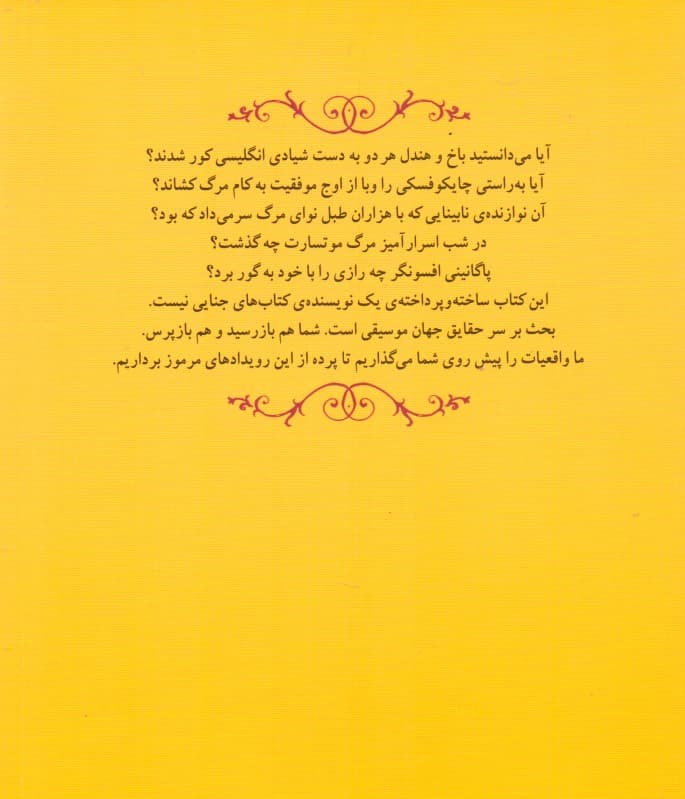 آیا می‌دانستید باخ و هندل هر دو به دست شیادی انگلیسی کور شدند؟
آیا به‌راستی چایکوفسکی را وبا از اوج موفقیت به کام مرگ کشاند؟
آن نوازنده‌ی نابینایی که با هزاران طبل نوای مرگ سر می‌داد که بود؟
در شب اسرارآمیز مرگ موتسارت چه گذشت؟
پاگانینی افسونگر چه رازی را با خود به گور برد؟
این کتاب ساخته‌وپرداخته‌ی یک نویسنده‌ی کتاب‌های جنایی نیست.
بحث بر سر حقایق جهان موسیقی است. شما هم بازرسید و هم بازپرس.
ما واقعیات را پیش روی شما می‌گذاریم تا پرده از این رویدادهای مرموز برداریم.